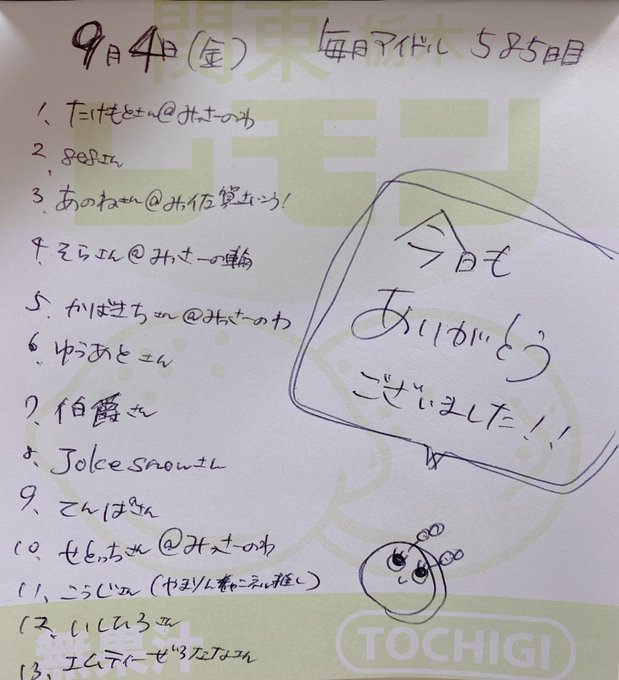 9月4日(金) 毎月アイドル 585日目
1、たけもとさん@みっさーのわ
2、808さん
3、あのねさん@みっ佐算さいこう!
4、そらさん@みっさーの輪
5、かばきちさん@みっさーのわ
6、ゆうあとさん
7、伯爵さん
8、Jokesnowさん
9、てんぱさん
10、せとっちさん@みっさーのわ
11、こうじさん(やまりんチャンネル推し)
12、いしひろさん
13、エムティーぜろななさん
今日も
ありがとう
ございました!!
関東 栃木
レモン
無果汁
TOCHIGI